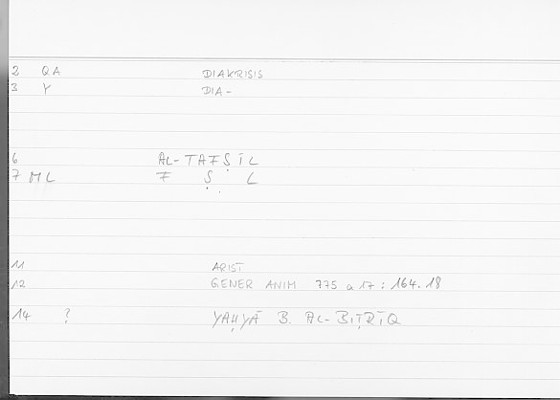 2 QA DIAKRISIS
3 Y DIA-
6 AL-TAFṢĪL
7 ML F Ṣ L
11 ARIST
12 GENER ANIM 775 a 17 : 164.18
14 ? YAḤYĀ B. AL-BIṬRĪQ